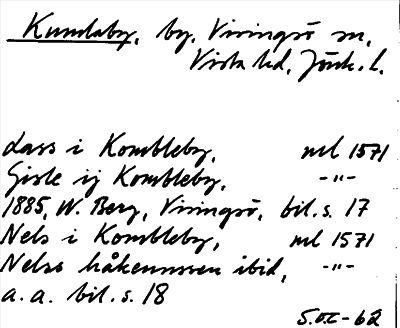 Kumlaby, by, Visingsö sn,
Vista hd, Jönk. l.
Lass i Kombleby, ml 1571
Gisle ij Kombleby, -"-
1885, W. Berg, Visingsö, bil. s. 17
Nels i Kombleby, ml 1571
Nelss håkennssen ibid, -"-
a. a. bil. s. 18
-62